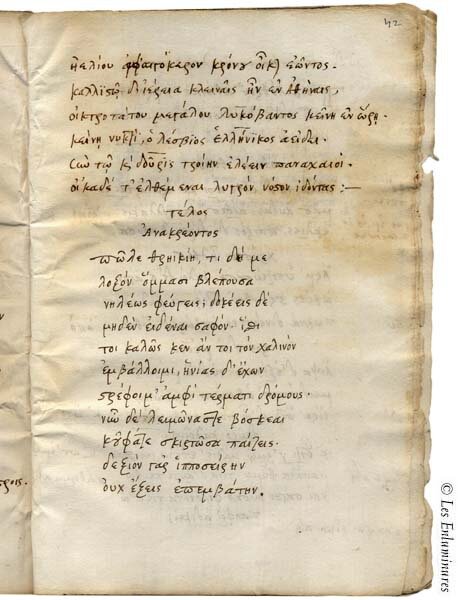 42
ἠελίου κρόνου ἐῶντος.
καλλιστὼ δ' ἱέρεια κλειναῖς ἦν ἐν Ἀθήναις,
οἰκτροτάτου μεγάλου λυκόβαντος κείνη ἐν ὥρῃ.
κείνῃ νυκτὶ, ὁ λέσβιος ἑλλήνικος ἀείδει.
Σὺν τῷ καὶ δοῦρις τροίην ἑλέειν παναχαιοί.
οἴκαδέ τ' ἐλθέμεναι λυγρὸν νόστον ἰδόντας :—
τέλος
Ἀνακρέοντος
πῶλε θρηικίη, τι δή με
λοξὸν ὄμμασι βλέπουσα
νηλέως φεύγεις; δοκέεις δέ
μηδὲν εἰδέναι σοφόν. ἴσθι
τοι καλῶς κεν ἄν τοι τὸν χαλινὸν
ἐμβάλλοιμι, ἡνίας δ' ἔχων
στρέφοιμ' ἀμφὶ τέρματι δρόμους.
νῦν δὲ λειμῶνας τε βόσκεαι
κοῦφα τε σκιρτῶσα παίζεις.
δεξιὸν γὰρ ἱπποσείρην
οὐχ ἕξεις ἐπεμβάτην.
© Les Enluminures